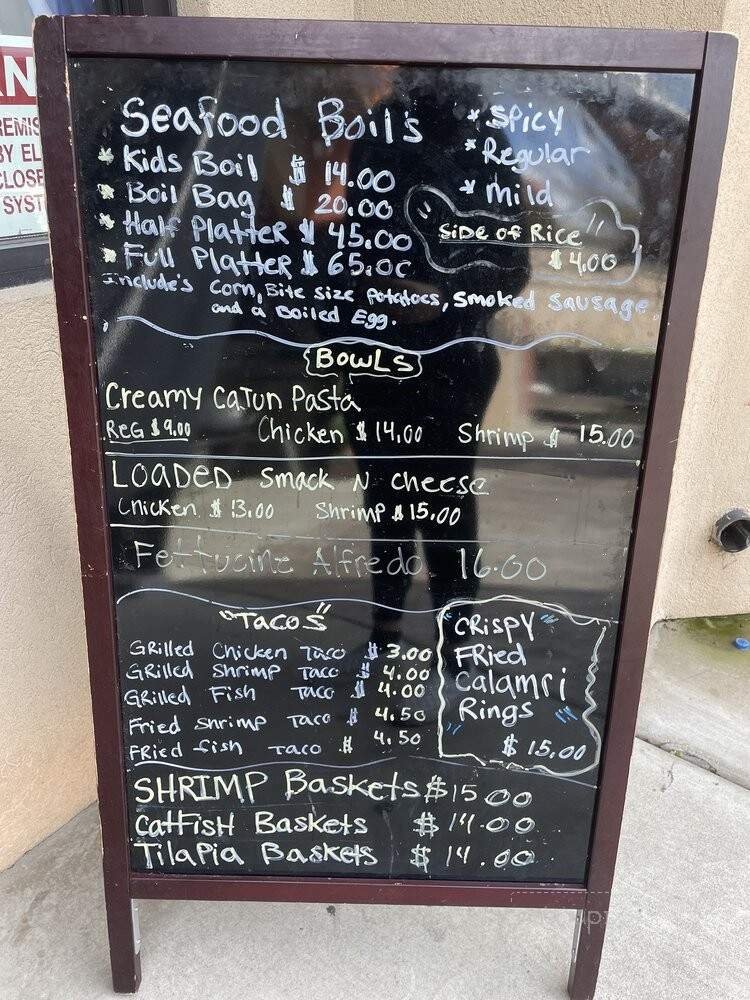 Seafood Boil's
* Kids Boil $ 14.00
* Boil Bag $ 20.00
* Half Platter $ 45.00
* Full Platter $ 65.00
* Spicy
* Regular
* mild
Side of Rice
$ 4.00
Include's Corn, Bite size Potatoes, Smoked Sausage
and a Boiled Egg.
Bowls
Creamy Cajun Pasta
Reg $9.00 Chicken $ 14.00 Shrimp $ 15.00
LOADED Smack N cheese
Chicken $ 13.00 Shrimp $ 15.00
Fettucine Alfredo 16.00
"Tacos"
Grilled Chicken Taco $ 3.00
Grilled Shrimp Taco $ 4.00
Grilled Fish Taco $ 4.00
Fried Shrimp Taco $ 4.50
Fried fish Taco $ 4.50
"Crispy"
Fried
Calamri
Rings
$ 15.00
SHRIMP Baskets $15.00
Catfish Baskets $ 14.00
Tilapia Baskets $ 14.00